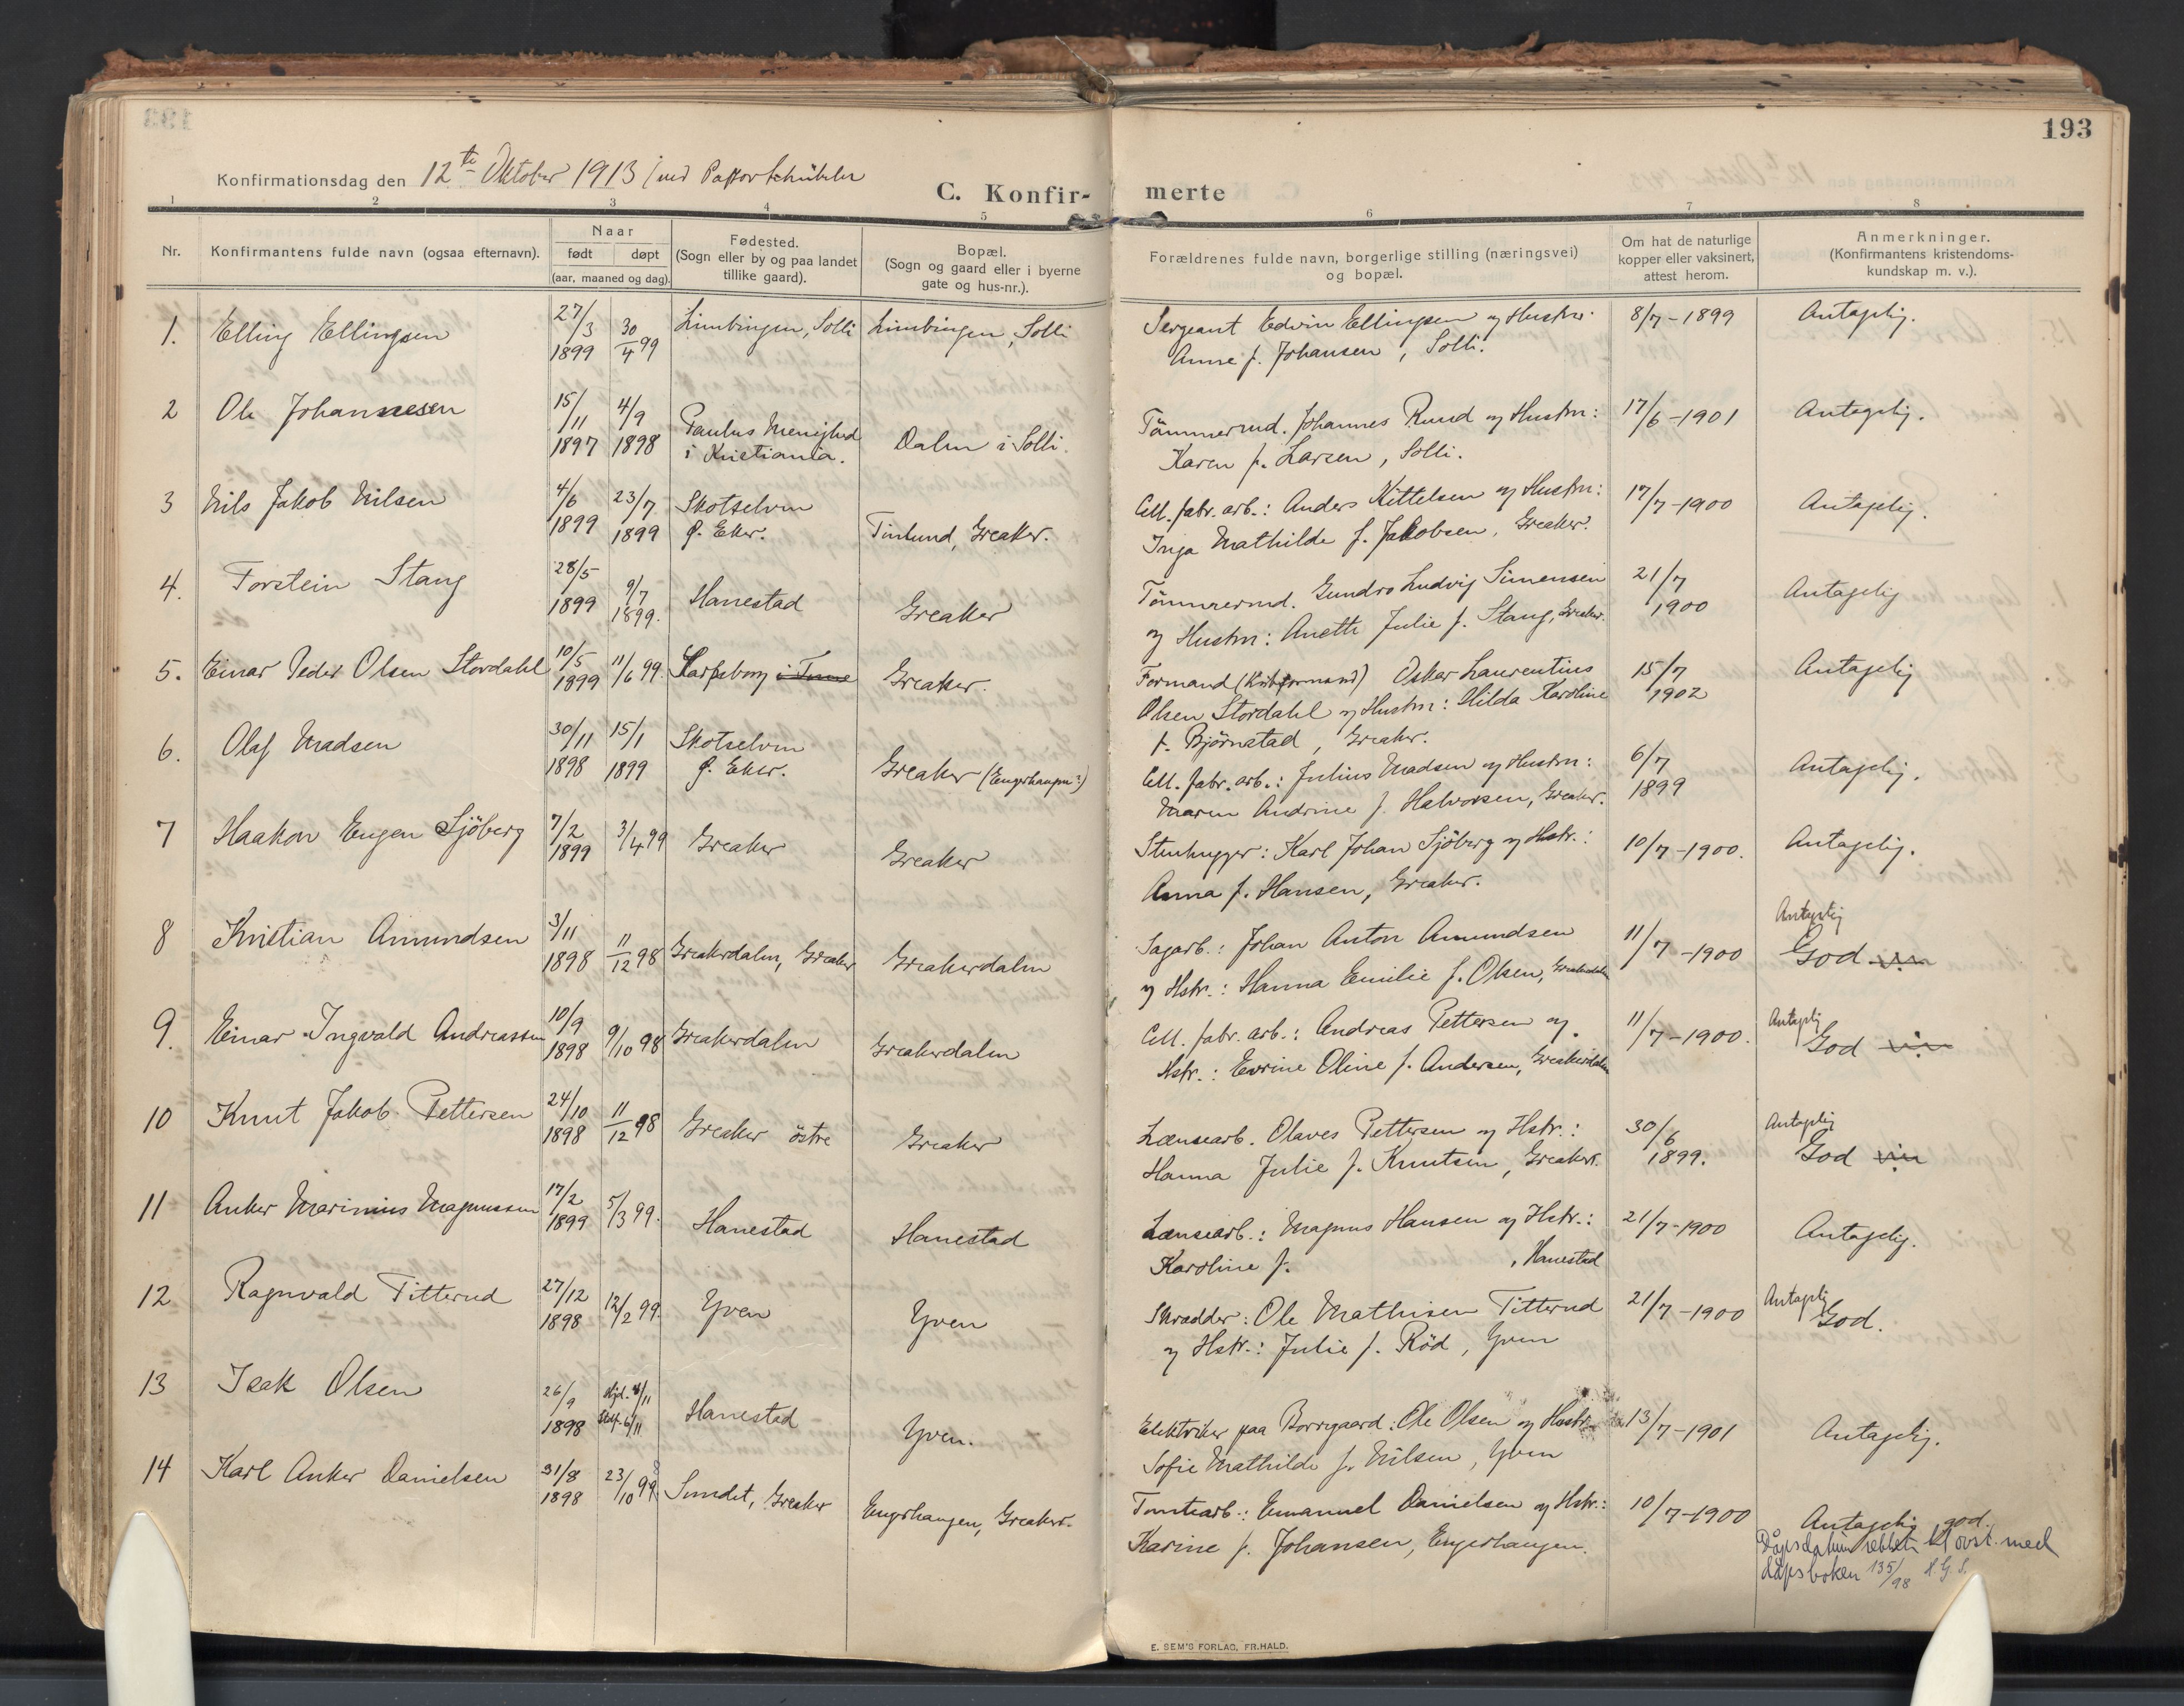 193
Konfirmationsdag den 12te Oktober 1913 (ved Pastor Schübeler
C. Konfir-
merte
1 2 3 4 5 6 7 8
Nr.
Konfirmantens fulde navn (ogsaa efternavn).
Naar
født døpt
(aar, maaned og dag).
Fødested.
(Sogn eller by og paa landet
tillike gaard).
Bopæl.
(Sogn og gaard eller i byerne
gate og hus-nr.).
Forældrenes fulde navn, borgerlige stilling (næringsvei)
og bopæl.
Om hat de naturlige
kopper eller vaksinert,
attest herom.
Anmerkninger.
(Konfirmantens kristendoms-
kundskap m. v.).
1. Elling Ellingsen 27/3 1899 30/4 99 Limbingen, Solli Limbingen, Solli Sergeant Edvin Ellingsen og Hustru: 8/7-1899 Antagelig.
Anne f. Johansen, Solli.
2 Ole Johannesen 15/11 1897 4/9 1898 Paulus Menighed Dalen i Solli. Tömmermd. Johannes Ruud og Hustru: 17/6-1901 Antagelig.
i Kristiania. Karen f. Larsen, Solli.
3 Nils Jakob Nilsen 4/6 1899 23/7 1899 Skotselven Tinlund, Greaker. Cell. fabr. arb.: Anders Kittelsen og Hustru: 17/7-1900 Antagelig.
Ø. Eker. Inga Mathilde f. Jakobsen, Greaker.
4. Torstein Stang 28/5 1899 9/7 1899. Hanestad Greaker Tömmermd. Gundro Ludvig Simensen 21/7 1900 Antagelig
og Hustru: Anette Julie f. Stang, Greaker.
5. Einar Peder Olsen Stordahl 10/5 1899 11/6 99. Sarpsborg i Tune Greaker. Formand (Kubformand) Oskar Laurentius 15/7 1902 Antagelig
Olsen Stordahl og Hustru: Hilda Karoline
f. Björnstad, Greaker.
6. Olaf Madsen 30/11 1898 15/1 1899 Skotselven Greaker (Engerhaugen?) Cell. fabr. arb.: Julius Madsen og Hustru: 6/7 1899 Antagelig.
Ø. Eker. Maren Andrine f. Halvorsen, Greaker.
7 Haakon Eugen Sjöberg 7/2 1899 3/4 99 Greaker Greaker Stenhugger: Karl Johan Sjöberg og Hstr.: 10/7-1900. Antagelig.
Anna f. Hansen, Greaker.
8 Kristian Amundsen 3/11 1898 11/12 98 Greakerdalen, Greaker Greakerdalen Sagarb.: Johan Anton Amundsen 11/7-1900 Antagelig God
og Hstr.: Hanna Emilie f. Olsen, Greakerdalen
9. Einar Ingvald Andreassen 10/9 1898 9/10 98 Greakerdalen Greakerdalen Cell. fabr. arb.: Andreas Pettersen og 11/7-1900. Antagelig God
Hstr.: Evrine Oline f. Andersen, Greakerdalen
10 Knut Jakob Pettersen 24/10 1898 11/12 98 Greaker östre Greaker Lænsearb. Olaves Pettersen og Hstr.: 30/6 1899. Antagelig God
Hanna Julie f. Knutsen, Greaker.
11 Anker Marinius Magnussen 17/2 1899 5/3 99. Hanestad Hanestad Lænsearb.: Magnus Hansen og Hstr.: 21/7-1900 Antagelig.
Karoline f. , Hanestad
12 Ragnvald Titterud 27/12 1898 12/2 99. Yven Yven Skrædder: Ole Mathisen Titterud 21/7-1900 Antagelig God.
og Hstr.: Julie f. Röd, Yven
13 Isak Olsen 26/9 1898 Hjd. 4/11 Stf. 6/11 Hanestad Yven. Elektriker paa Borregaard: Ole Olsen og Hustr. 13/7-1901 Antagelig.
Sofie Mathilde f. Nilsen, Yven
14 Karl Anker Danielsen 31/8 1898 23/10 998 Sundet, Greaker Engerhaugen, Greaker. Tomtearb.: Emanuel Danielsen og Hstr.: 10/7-1900 Antagelig god.
Karine f. Johansen, Engerhaugen.
Dåpsdatum rettet i ovst. med
dåpsboken 135/98 A.G.S.
E. SEM'S FORLAG, FR.HALD.